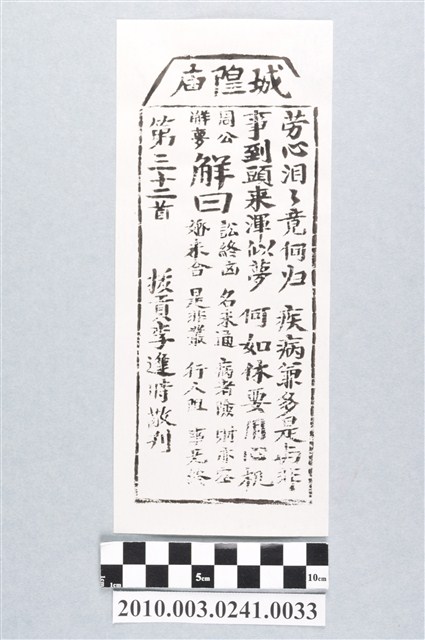 城隍廟
劳心汨〻竟何归 疾病兼多是与非
事到頭来渾似夢 何如休要用心机
周公解夢
解曰
訟終凶 名未通 病者險 財亦空
婚未合 是非叢 行人阻 事无終
第三十二首
拔貢李進時敬刋
1cm 5cm 10cm
2010.003.0241.0033